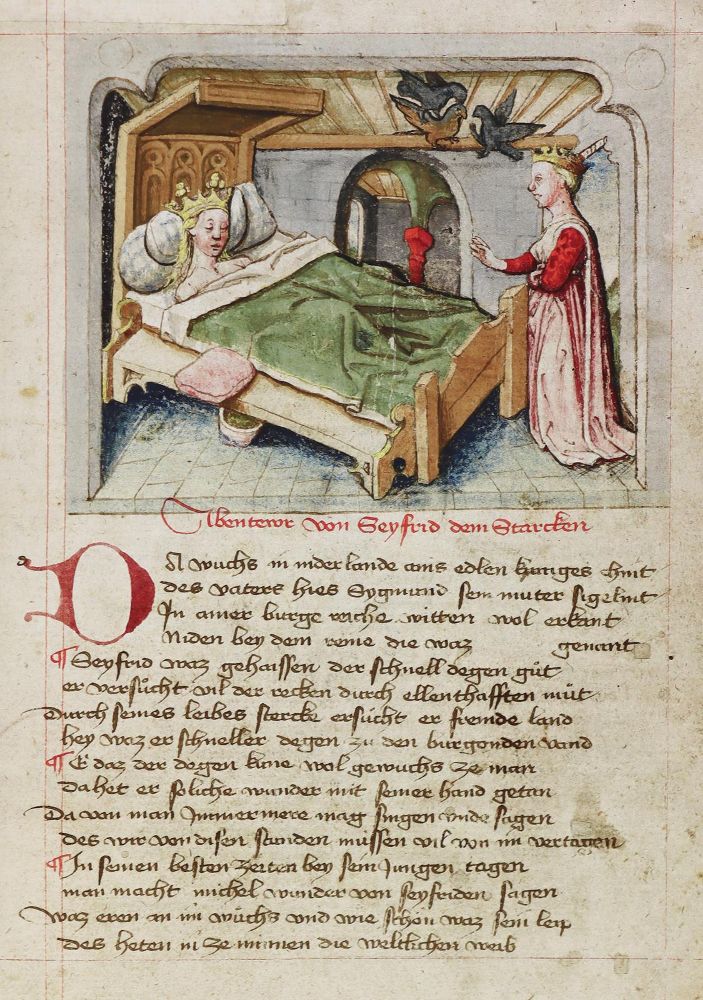 Abentewr von Seyfrid dem Starcken
DA wuchs in niderlande ains edlen kuniges chint
des vaters hies Sygmund sein muter sigelint
In ainer burge reiche witten wol erkant
Niden bey dem reine die waz genant
¶ Seyfrid waz gehaissen der schnell degen gůt
er versůcht vil der recken durch ellenthafften můt
Durch seines leibes stercke ersůcht er fremde land
hey waz er schneller degen zu den burgonden vand
¶ E daz der degen küne wol gewuchs ze man
Da het er soliche wunder mit seiner hand getan
Da von man Immermere mag singen vnde sagen
des wir von disen stunden müssen vil von im vertagen
¶ In seinen besten zeiten bey sein Jungen tagen
man macht michel wunder von seyfriden sagen
Waz eren an im wůchs vnd wie schön waz sein leip
des heten in ze minnen die weltlichen weib